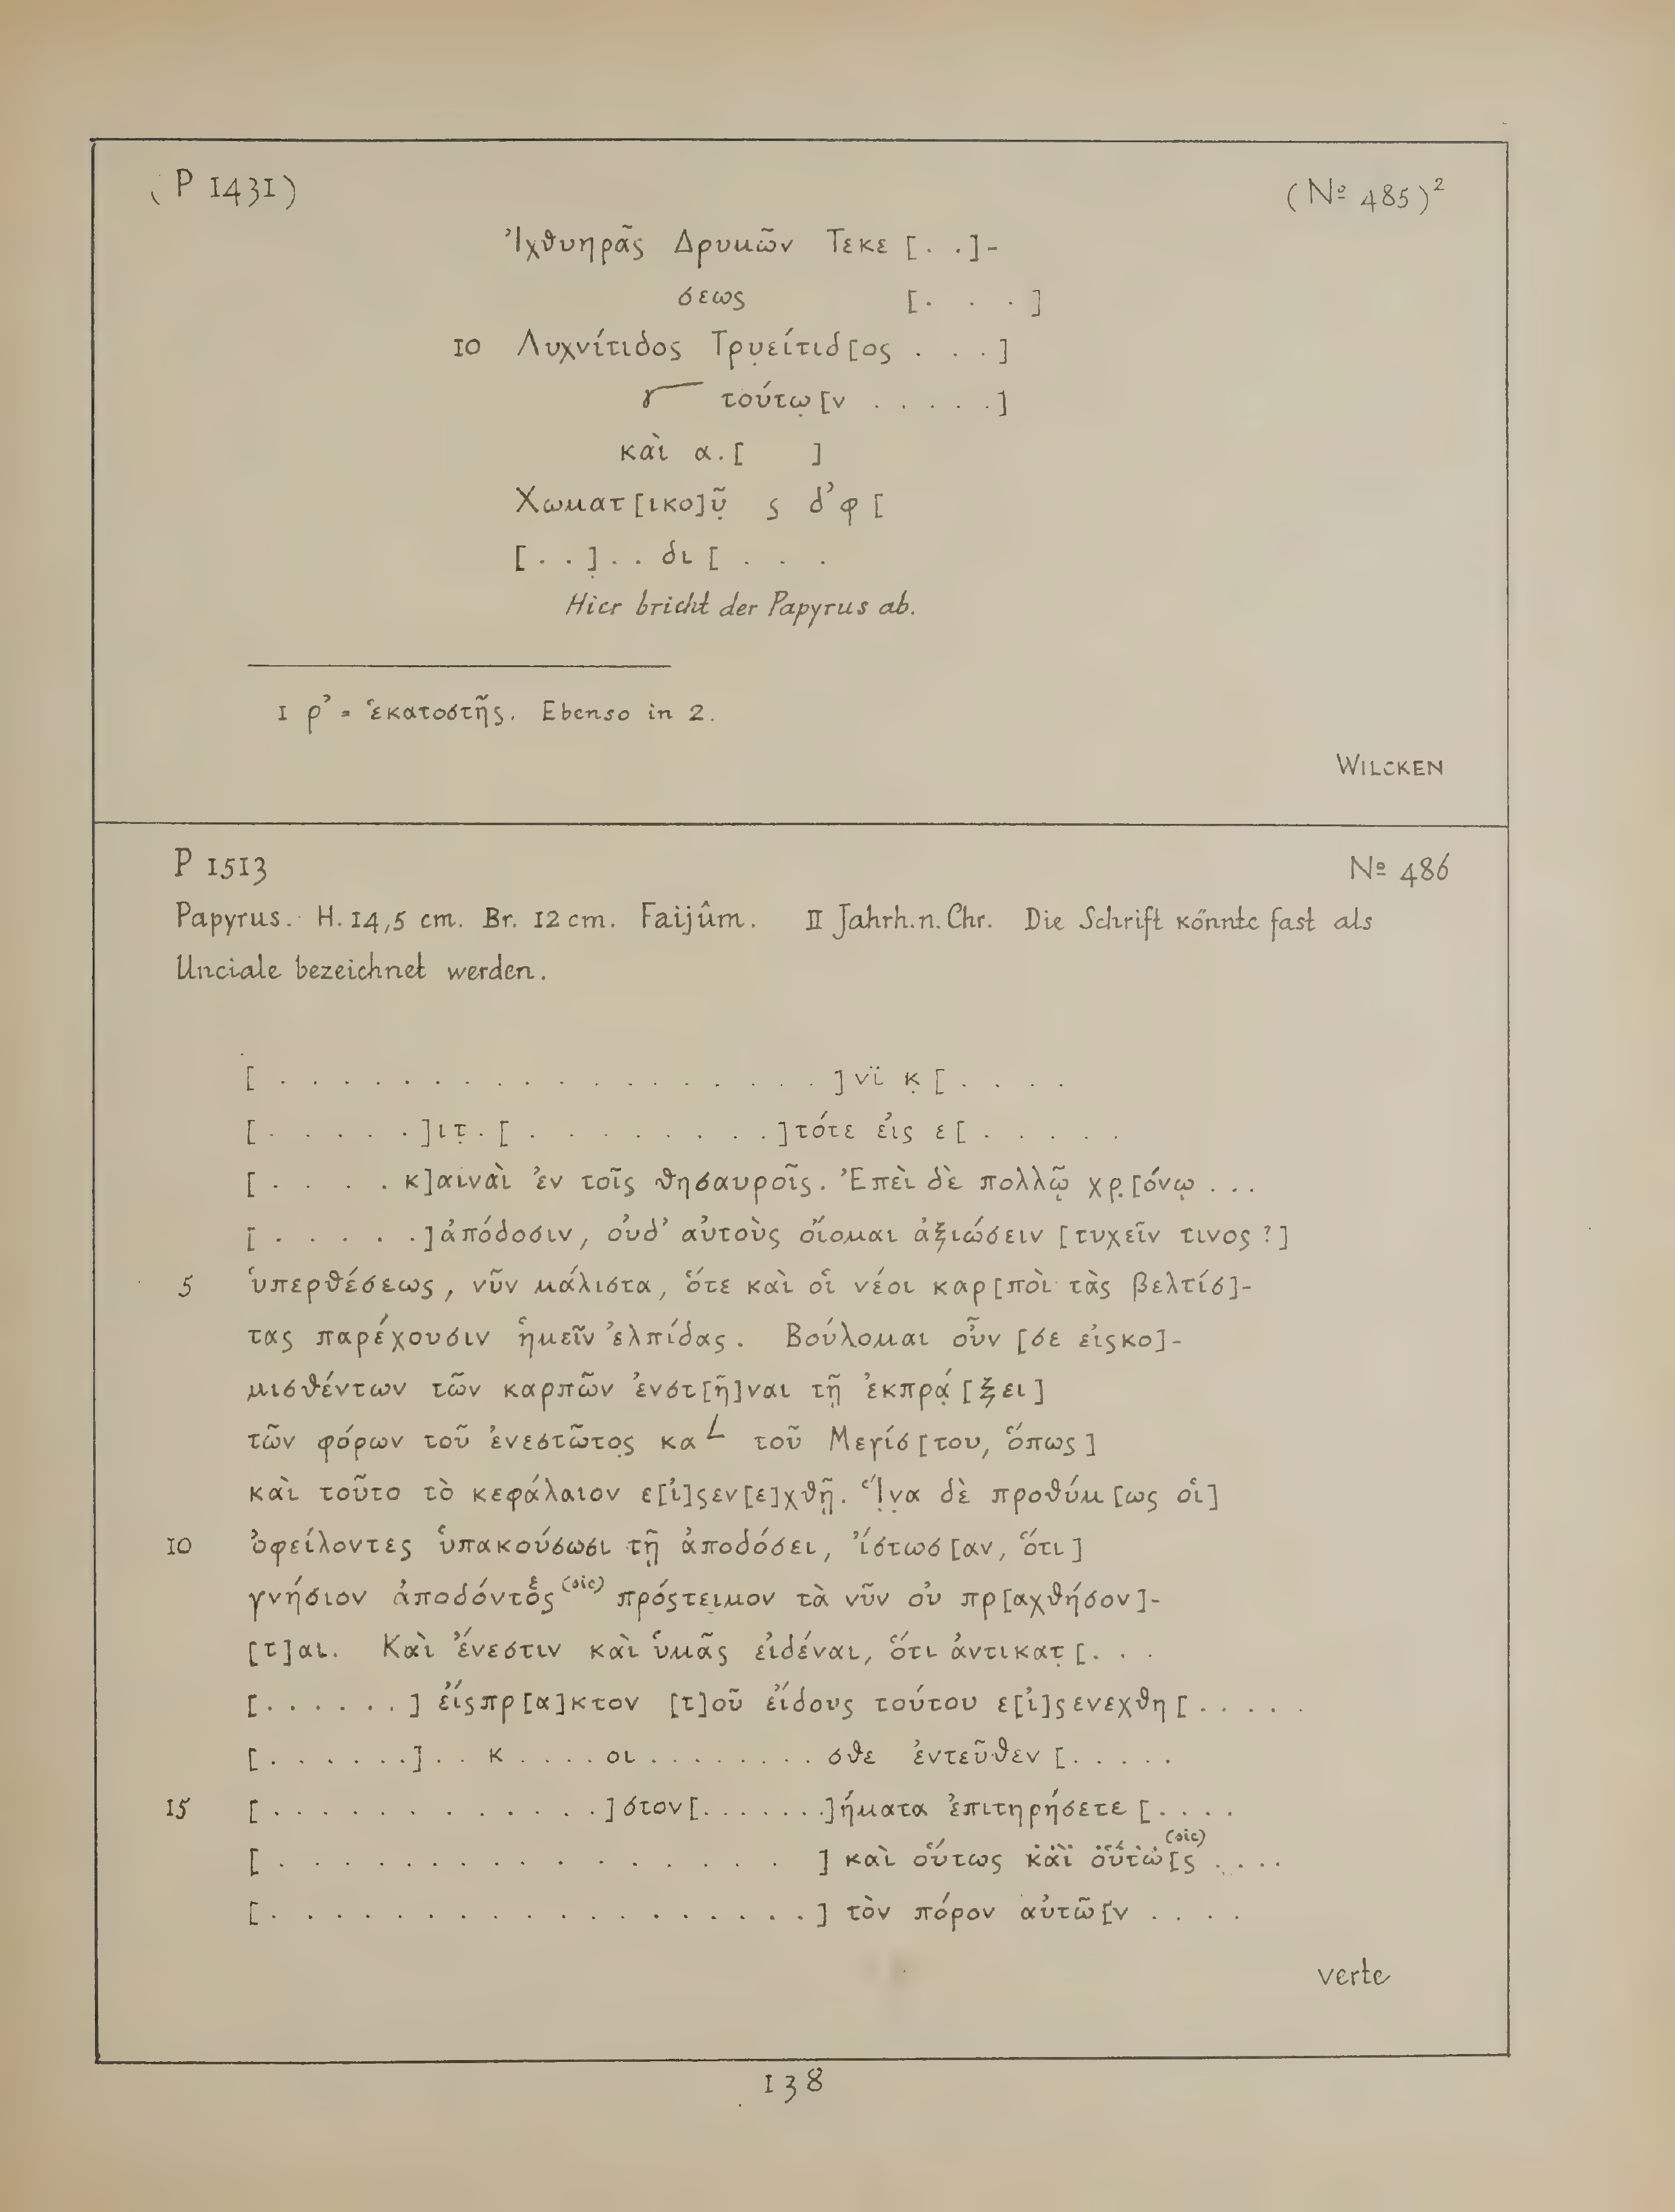 (P 1431) (No 485)²
Ἰχθυηρᾶς Δρυμῶν Τεκε [. .]-
σεως [. . .]
10 Λυχνίτιδος Τρυ̣είτιδ[ος . . .]
γ τούτω̣[ν . . . . .]
καὶ α.[ ]
Χωματ[ικο]ῦ̣ ς δ᾽φ [
[. .]̣ . . δι [ . . .
Hier bricht der Papyrus ab.
1 ρ᾽ = ἑκατοστῆς. Ebenso in 2.
WILCKEN
P 1513 No 486
Papyrus. H. 14,5 cm. Br. 12 cm. Faijûm. II Jahrh. n. Chr. Die Schrift könnte fast als
Unciale bezeichnet werden.
[ . . . . . . . . . . . . . . . . . . ] νϊ κ̣ [ . . . .
[ . . . . . ]ιτ̣ . [ . . . . . . . . ] τότε εἰς ε[ . . . . .
[ . . . . κ]αιναὶ ἐν τοῖς θησαυροῖς. Ἐπεὶ δὲ πολλῷ χρ̣[όνῳ . . .
[ . . . . . .] ἀπόδοσιν, οὐδ᾽ αὐτοὺς οἴομαι ἀξιώσειν [τυχεῖν τινος ?]
5 ὑπερθέσεως, νῦν μάλιστα, ὅτε καὶ οἱ νέοι καρ[ποὶ τὰς βελτίσ]-
τας παρέχουσιν ἡμεῖν ἐλπίδας. Βούλομαι οὖν [σε εἰςκο]-
μισθέντων τῶν καρπῶν ἐνστ[ῆ]ναι τῇ ἐκπρά̣[ξει]
τῶν φόρων τοῦ ἐνεστῶτο̣ς κα L τοῦ Μεγίσ[του, ὅπως]
καὶ τοῦτο τὸ κεφάλαιον ε[ἰ]ςεν[ε]χθῇ. Ἵ̣ν̣α δὲ προθύμ[ως οἱ]
10 ὀφείλοντες ὑπακούσωσι τῇ ἀποδόσει, ἴστωσ[αν, ὅτι]
γνήσιον ἀποδόντὅς (sic) πρόςτει̣μον τὰ νῦν οὐ πρ[αχθήσον]-
[τ]αι. Καὶ ἔνεστιν καὶ ὑμᾶς εἰδέναι, ὅτι ἀντικατ̣ [. . .
[. . . . . . ] εἴςπρ[α]κτον [τ]οῦ εἴδους τούτου ε[ἰ]ςενεχθη [. . . . .
[. . . . . .] . . κ . . . . οι . . . . . . . . σθε ἐντεῦθεν [. . . . .
15 [. . . . . . . . . . . .] στον[. . . . . . .]ήματα ἐπιτηρήσετε [. . . .
[ . . . . . . . . . . . . . . . . ] καὶ οὕτως κ̇α̇ὶ̇ ο̇ὕ̇τ̇ω̇[ς (sic) . . . .
[. . . . . . . . . . . . . . . . . .] τὸν πόρον αὐτῶ[ν . . . .
verte
138